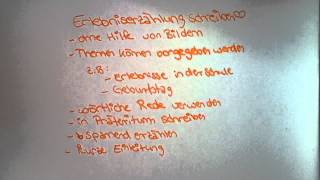 Erlebniserzählung schreiben♡
- ohne Hilfe von Bildern
- Themen können vorgegeben werden
z.B:
- Erlebnisse in der Schule
- Geburtstag
- wörtliche Rede verwenden
- in Präteritum schreiben
- spannend erzählen
- kurze Einleitung